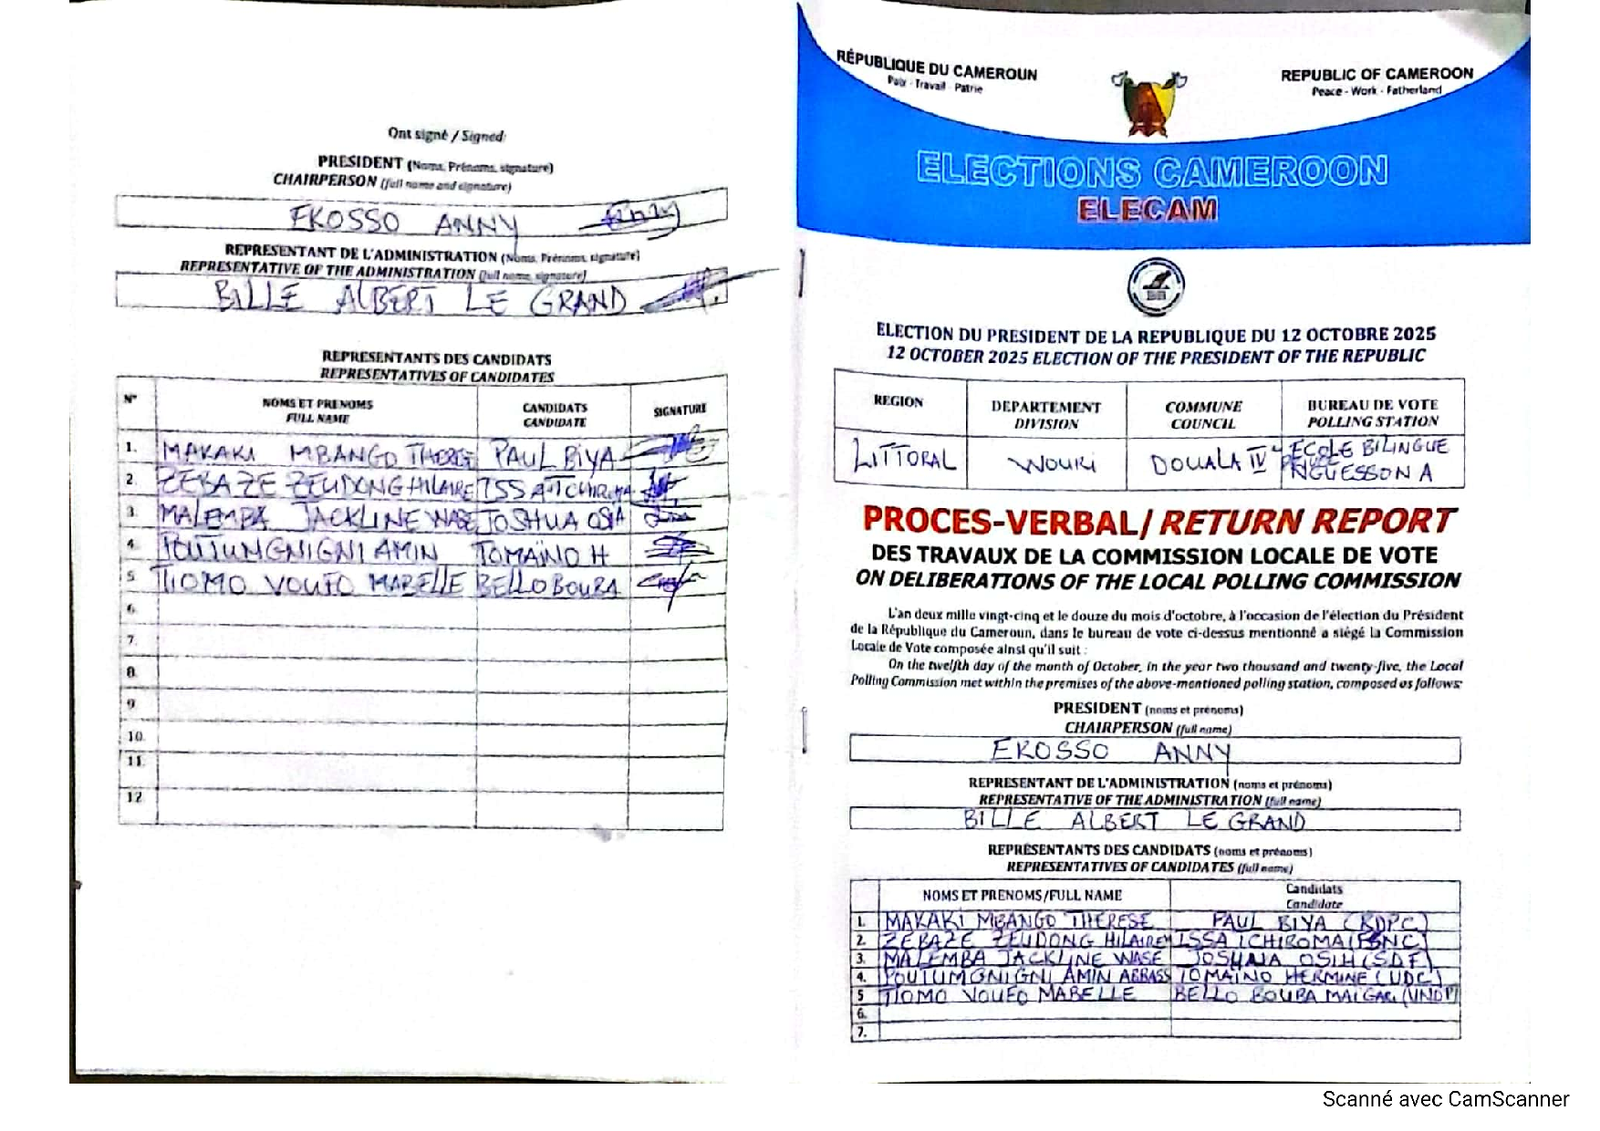 Ont signé / Signed:
PRESIDENT (Noms, Prénoms, signature)
CHAIRPERSON (full name and signature)
EKOSSO ANNY
REPRESENTANT DE L'ADMINISTRATION (Noms, Prénoms, signature)
REPRESENTATIVE OF THE ADMINISTRATION (full name, signature)
BILLE ALBERT LE GRAND
REPRESENTANTS DES CANDIDATS
REPRESENTATIVES OF CANDIDATES
N° NOMS ET PRENOMS CANDIDATS SIGNATURE
FULL NAME CANDIDATE
1. MAKAKI MBANGO THERESE PAUL BIYA
2. ZEBAZE ZEUDONG HILAIRE ISSA TCHIROMA
3. MALEMBA JACKLINE WASE JOSHUA OSIH
4. POUTUMGNIGNI AMIN TOMAÏNO H
5. TIOMO VOUFO MABELLE BELLO BOUBA
6.
7.
8.
9
10.
11.
12
RÉPUBLIQUE DU CAMEROUN
Paix - Travail - Patrie
REPUBLIC OF CAMEROON
Peace - Work - Fatherland
ELECTIONS CAMEROON
ELECAM
ELECTION DU PRESIDENT DE LA REPUBLIQUE DU 12 OCTOBRE 2025
12 OCTOBER 2025 ELECTION OF THE PRESIDENT OF THE REPUBLIC
REGION DEPARTEMENT COMMUNE BUREAU DE VOTE
DIVISION COUNCIL POLLING STATION
LITTORAL WOURI DOUALA IV ECOLE BILINGUE
NGUESSON A
PROCES-VERBAL/ RETURN REPORT
DES TRAVAUX DE LA COMMISSION LOCALE DE VOTE
ON DELIBERATIONS OF THE LOCAL POLLING COMMISSION
L'an deux mille vingt-cinq et le douze du mois d'octobre, à l'occasion de l'élection du Président
de la République du Cameroun, dans le bureau de vote ci-dessus mentionné a siégé la Commission
Locale de Vote composée ainsi qu'il suit :
On the twelfth day of the month of October, in the year two thousand and twenty-five, the Local
Polling Commission met within the premises of the above-mentioned polling station, composed as follows:
PRESIDENT (noms et prénoms)
CHAIRPERSON (full name)
EKOSSO ANNY
REPRESENTANT DE L'ADMINISTRATION (noms et prénoms)
REPRESENTATIVE OF THE ADMINISTRATION (full name)
BILLE ALBERT LE GRAND
REPRÉSENTANTS DES CANDIDATS (noms et prénoms)
REPRESENTATIVES OF CANDIDATES (full name)
NOMS ET PRENOMS/FULL NAME Candidats
Candidate
1. MAKAKI MBANGO THERESE PAUL BIYA (RDPC)
2. ZEBAZE ZEUDONG HILAIRE ISSA TCHIROMA (FSNC)
3. MALEMBA JACKLINE WASE JOSHUA OSIH (SDF)
4. POUTUMGNIGNI AMIN ABBASS TOMAÏNO HERMINE (UDC)
5 TIOMO VOUFO MABELLE BELLO BOUBA MAIGARI (UNDP)
6.
7.
Scanné avec CamScanner